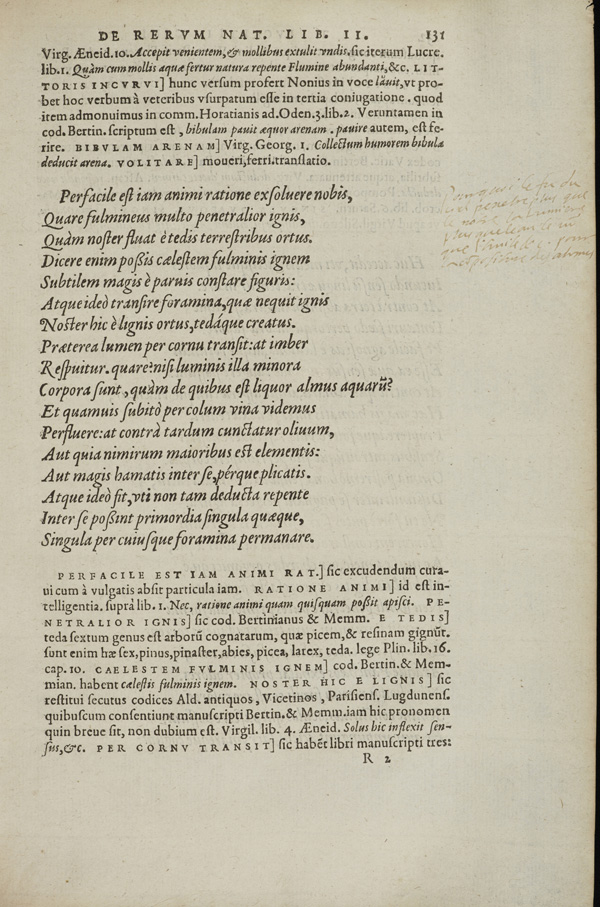 DE RERVM NAT. LIB. II. 131
Virg. Æneid. 10. Accepit venientem, & mollibus extulit vndis. sic iterum Lucre.
lib. 1. Quàm cum mollis aquæ fertur natura repente Flumine abundanti, &c. LIT-
TORIS INCVRVI] hunc versum profert Nonius in voce lăuit, vt pro-
bet hoc verbum à veteribus vsurpatum esse in tertia coniugatione. quod
item admonuimus in comm. Horatianis ad. Oden. 3. lib. 2. Veruntamen in
cod. Bertin. scriptum est, bibulam pauit æquor arenam. pauire autem, est fe-
rire. BIBVLAM ARENAM] Virg. Georg. 1. Collectum humorem bibula
deducit arena. VOLITARE] moueri, ferri. translatio.
Perfacile est iam animi ratione exsoluere nobis,
Quare fulmineus multo penetralior ignis,
Quàm noster fluat è tedis terrestribus ortus.
Dicere enim poßis cælestem fulminis ignem
Subtilem magis è paruis constare figuris:
Atque ideò transire foramina, quæ nequit ignis
Noster hic è lignis ortus, tedáque creatus.
Præterea lumen per cornu transit: at imber
Respuitur. quare? nisi luminis illa minora
Corpora sunt, quàm de quibus est liquor almus aquarū?
Et quamuis subitò per colum vina videmus
Perfluere: at contrà tardum cunctatur oliuum,
Aut quia nimirum maioribus est elementis:
Aut magis hamatis inter se, pérque plicatis.
Atque ideò fit, vti non tam deducta repente
Inter se poßint primordia singula quæque,
Singula per cuiusque foramina permanare.
PERFACILE EST IAM ANIMI RAT.] sic excudendum cura-
ui cum à vulgatis absit particula iam. RATIONE ANIMI] id est in-
telligentia. suprà lib. 1. Nec, ratione animi quam quisquam poßit apisci. PE-
NETRALIOR IGNIS] sic cod. Bertinianus & Memm. E TEDIS]
teda sextum genus est arborū cognatarum, quæ picem, & resinam gignūt.
sunt enim hæ sex, pinus, pinaster, abies, picea, latex, teda. lege Plin. lib. 16.
cap. 10. CAELESTEM FVLMINIS IGNEM] cod. Bertin. & Mem-
mian. habent cælestis fulminis ignem. NOSTER HIC E LIGNIS] sic
restitui secutus codices Ald. antiquos, Vicetinos, Parisiens. Lugdunens.
quibuscum consentiunt manuscripti Bertin. & Memm. iam hic pronomen
quin breue sit, non dubium est. Virgil. lib. 4. Æneid. Solus hic inflexit sen-
sus, &c. PER CORNV TRANSIT] sic habēt libri manuscripti tres:
R 2